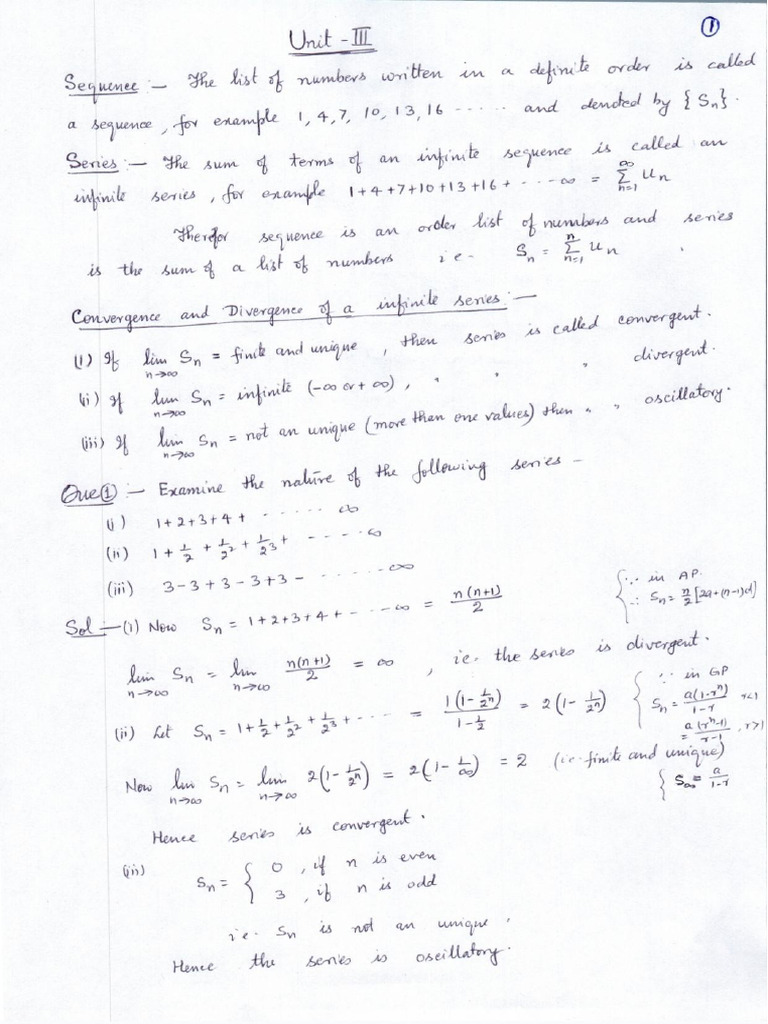 ①
Unit - III
Sequence :— The list of numbers written in a definite order is called
a sequence, for example 1, 4, 7, 10, 13, 16 ...... and denoted by {Sn}.
Series :— The sum of terms of an infinite sequence is called an
infinite series, for example 1+4+7+10+13+16+ ...∞ = ∑_{n=1}^{∞} Un
Therefor sequence is an order list of numbers and series
is the sum of a list of numbers i.e. Sn = ∑_{n=1}^{n} Un .
Convergence and Divergence of a infinite series :—
(i) If lim_{n→∞} Sn = finite and unique, then series is called convergent.
(ii) If lim_{n→∞} Sn = infinite (-∞ or +∞), " " " divergent.
(iii) If lim_{n→∞} Sn = not an unique (more than one values) then " " oscillatory.
Que① :— Examine the nature of the following series –
(i) 1+2+3+4+ ...... ∞
(ii) 1 + 1/2 + 1/2² + 1/2³ + ..... ∞
(iii) 3-3+3-3+3- ...... ∞
Sol :— (i) Now Sn = 1+2+3+4+ ...∞ = n(n+1)/2 { ∵ in AP. ∴ Sn = n/2 [2a+(n-1)d]
lim_{n→∞} Sn = lim_{n→∞} n(n+1)/2 = ∞ , i.e. the series is divergent.
(ii) Let Sn = 1 + 1/2 + 1/2² + 1/2³ + .... = 1(1-1/2ⁿ)/(1-1/2) = 2(1-1/2ⁿ) { ∵ in GP Sn = a(1-rⁿ)/(1-r) r<1 = a(rⁿ-1)/(r-1), r>1
Now lim_{n→∞} Sn = lim_{n→∞} 2(1-1/2ⁿ) = 2(1-1/∞) = 2 (i.e. finite and unique)
{ S∞ = a/(1-r)
Hence series is convergent.
(iii) Sn = { 0 , if n is even
3 , if n is odd
i.e. Sn is not an unique.
Hence the series is oscillatory.